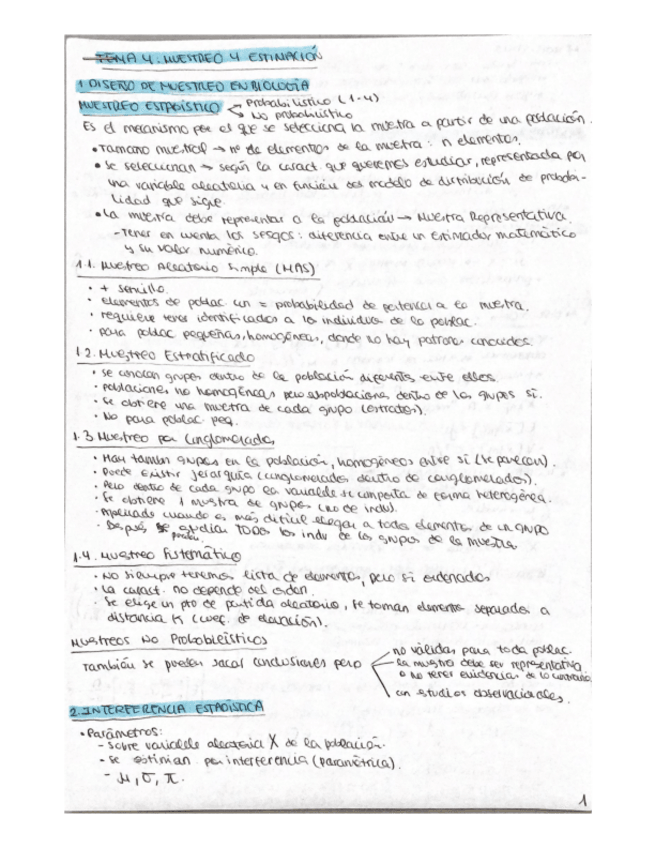 TEMA 4. MUESTREO Y ESTIMACIÓN
1 DISEÑO DE MUESTREO EN BIOLOGÍA
MUESTREO ESTADÍSTICO → Probabilístico (1-4)
→ No probabilístico
Es el mecanismo por el que se selecciona la muestra a partir de una población.
• Tamaño muestral → nº de elementos de la muestra: n elementos.
• Se seleccionan → según la caract que queremos estudiar, representada por
una variable aleatoria y en función del modelo de distribución de probabi-
lidad que sigue.
• La muestra debe representar a la población → Muestra Representativa.
- Tener en cuenta los sesgos: diferencia entre un estimador matemático
y su valor numérico.
1.1. Muestreo Aleatorio Simple (MAS)
• + sencillo.
• elementos de poblac con = probabilidad de pertencia a la muestra.
• requiere tener identificados a los individuos de la poblac.
• para poblac pequeñas, homogéneas, donde no hay patrones conocidos
1.2. Muestreo Estratificado
• Se conocen grupos dentro de la población diferentes entre ellos.
• poblaciones no homogéneas pero subpoblaciones dentro de los grupos sí.
• Se obtiene una muestra de cada grupo (estratos).
• No para poblac peq.
1.3 Muestreo por Conglomerados
• Hay también grupos en la población, homogéneos entre sí (se parecen).
• Puede existir jerarquía (conglomerados dentro de conglomerados).
• Pero dentro de cada grupo la variable se comporta de forma heterogénea.
• Se obtiene 1 muestra de grupos (no de indiv).
• Aplicado cuando es más difícil llegar a todos elementos de un grupo
• Después, se estudian TODOS los indv de los grupos de la muestra
1.4. Muestreo Sistemático
• No siempre tenemos lista de elementos, pero sí ordenados
• La caract. no depende del orden.
• Se elige un pto de partida aleatorio, se toman elementos separados a
distancia K (coef. de elevación).
Muestreos No Probabilísticos
También se pueden sacar conclusiones pero
no válidas para toda poblac.
la muestra debe ser representativa
o no tener evidencias de lo contrario
con estudios observacionales.
2. INTERFERENCIA ESTADÍSTICA
• Parámetros:
- sobre variable aleatoria X de la población.
- se estiman por interferencia (paramétrica).
- μ, σ, π.
1